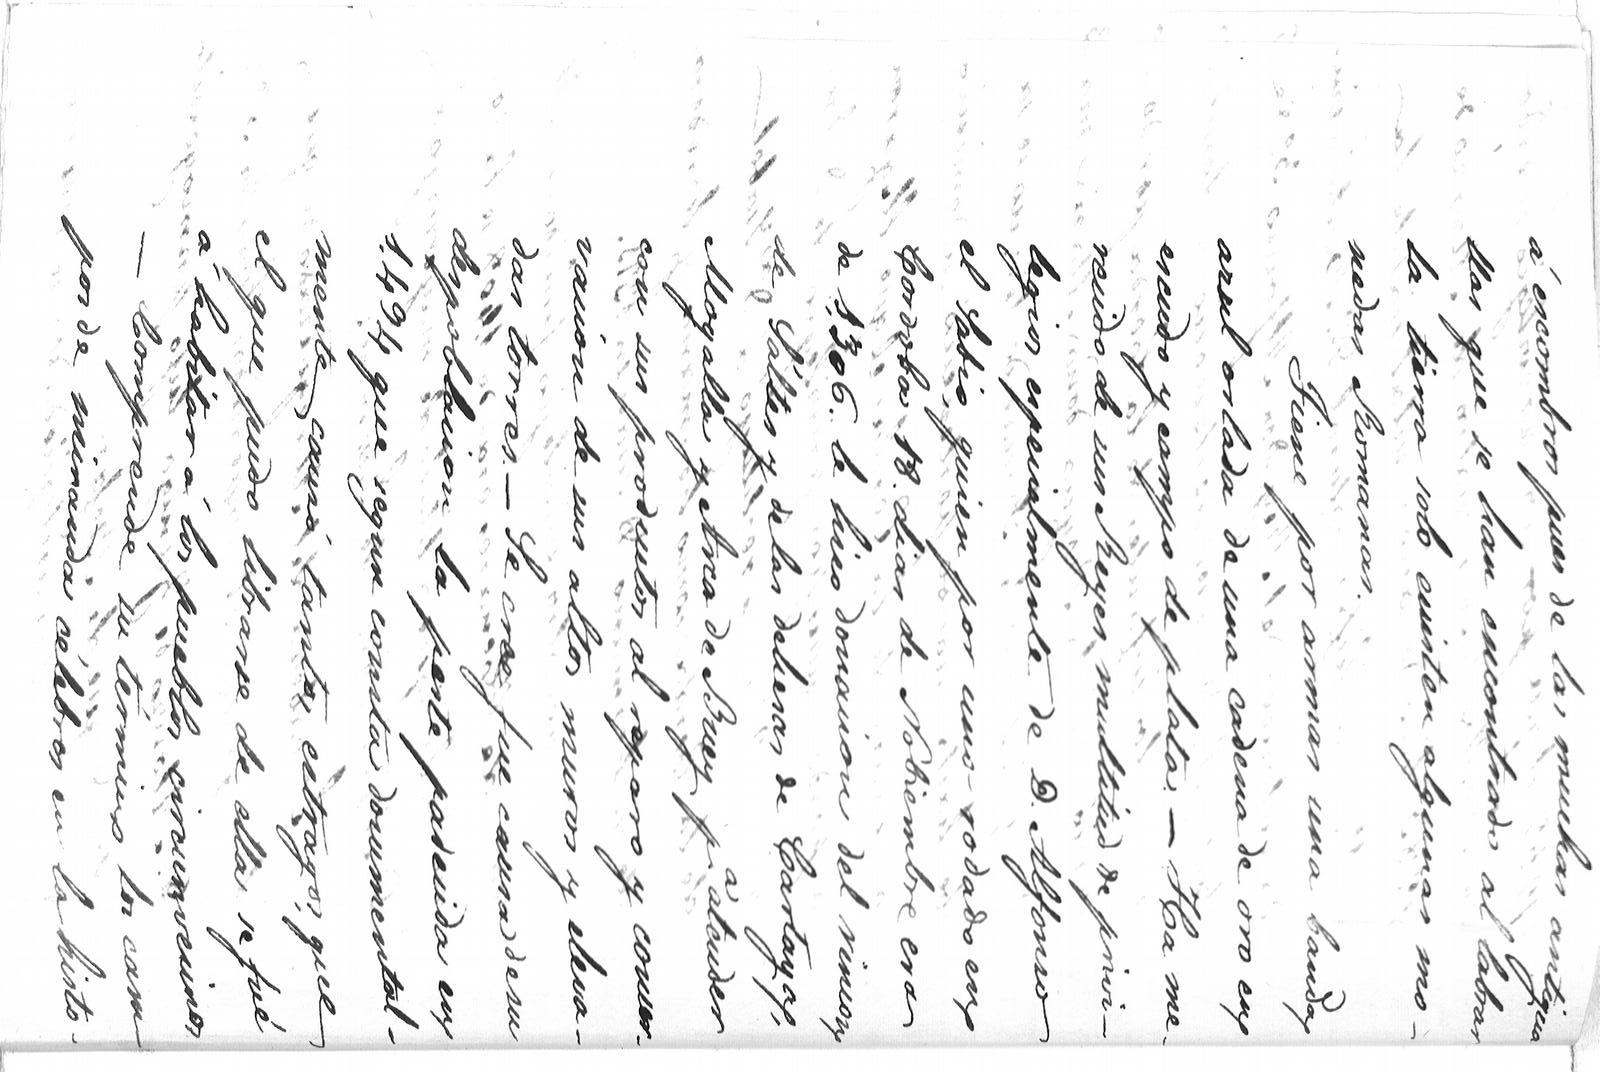 á escombros pues de las muchas antigua
llas que se han encontrado al labrar
la tierra solo cuisten algunas mo-
nedas Romanas.
Tiene por armas una banda
azul orlada de una cadena de oro en
escudo y campo de plata. — Ha me-
recido de sus Reyes multitud de privi-
legios especialmente de D. Alfonso
el Sabio, quien por uno rodado en
Cordoba 18. dias de Nobiembre era
de 1306. le hizo donacion del rincon
de Saltes y de las dehesas de Cartaya,
Mogalla y Arca de Buey p.ª atender
con sus productos al reparo y conser-
vacion de sus altos muros y eleva-
das torres. — Se cree fue causa de su
despoblacion la peste padecida en
1494 que segun consta documental-
mente, causó tantos estragos, que
el que pudo librarse de ella se fué
á habitar á los pueblos circunvecinos
— Comprende su término los cam
pos de munda célebres en la histo-